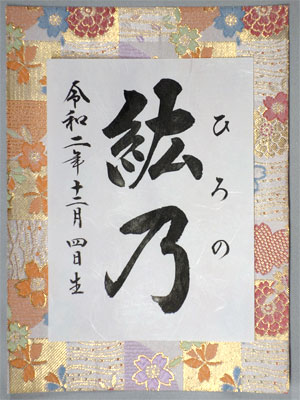 ひろの
紘乃
令和二年十二月四日生